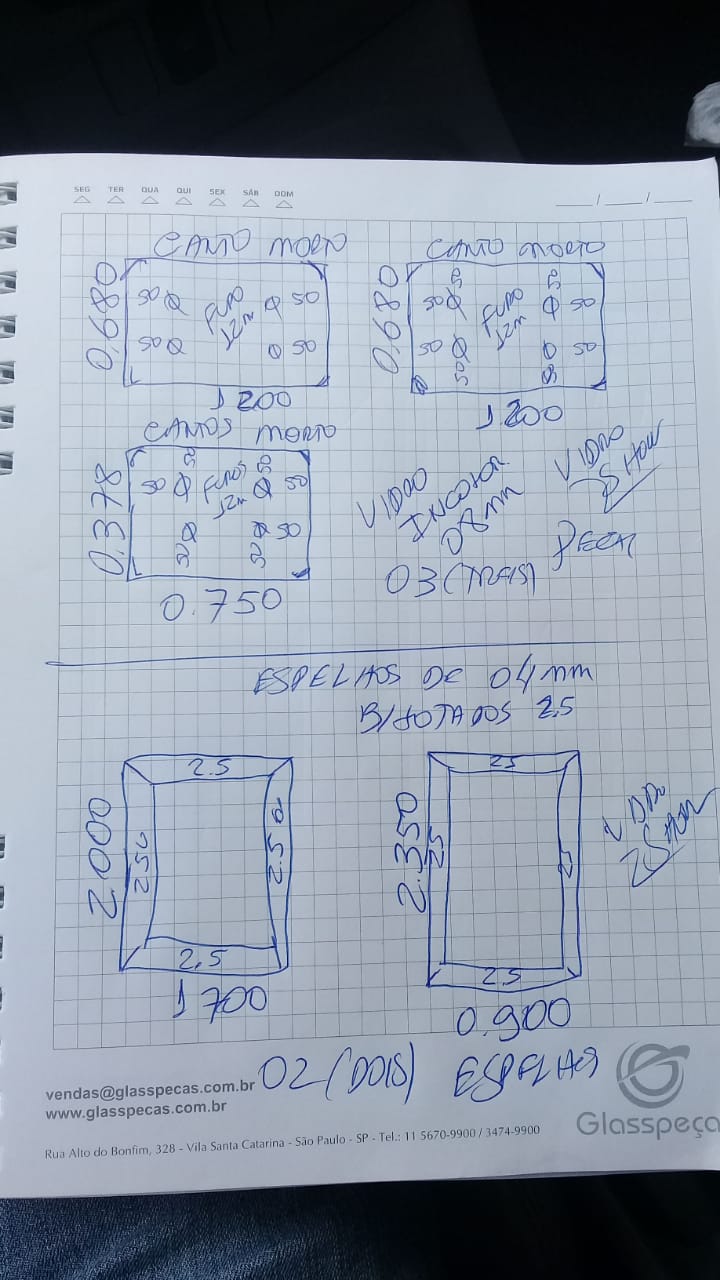 SEG TER QUA QUI SEX SÁB DOM
___/___/___
CANTO MORTO
0.680
50 50
FURO
12m
50 50
1200
CANTO MORTO
0.680
50
50
50 50
FURO
12m
50 50
50
50
1.200
CANTOS MORTO
0.378
50
50
50 50
FUROS
12m
50
50
50
0.750
VIDRO
INCOLOR
08mm
03 (TREIS)
VIDRO
SHOW
ESPELHOS DE 04mm
BISOTADOS 2,5
2.000
2.5
250
2.5
2.5
1700
2.350
25
25
25
25
0.900
02 (DOIS) ESPELHOS
vendas@glasspecas.com.br
www.glasspecas.com.br
Glasspeça
Rua Alto do Bonfim, 328 - Vila Santa Catarina - São Paulo - SP - Tel.: 11 5670-9900 / 3474-9900